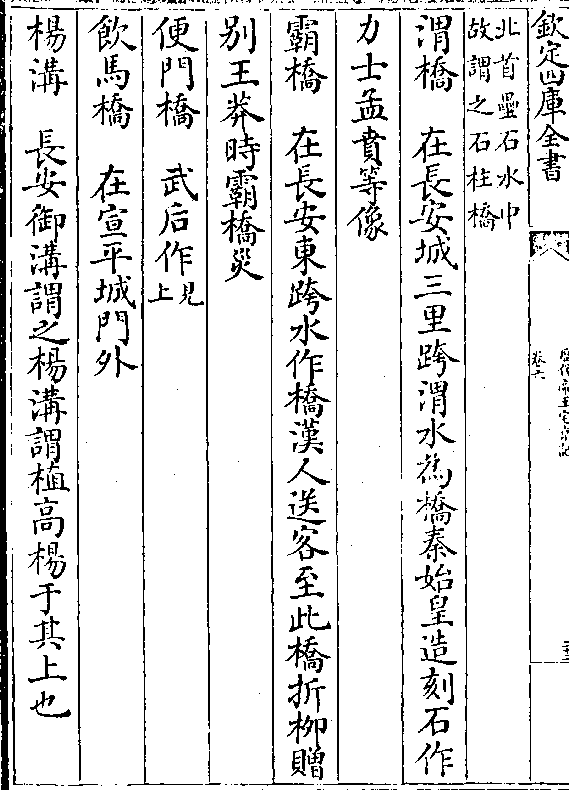 欽定四庫全書
卷六
北首壘石水中
故謂之石柱橋
渭橋　在長安城三里跨渭水為橋秦始皇造刻石作
力士孟賁等像
霸橋　在長安東跨水作橋漢人送客至此橋折栁贈
别王莽時霸橋災
便門橋　武后作見上
飲馬橋　在宣平城門外
楊溝　長安御溝謂之楊溝謂植高楊于其上也